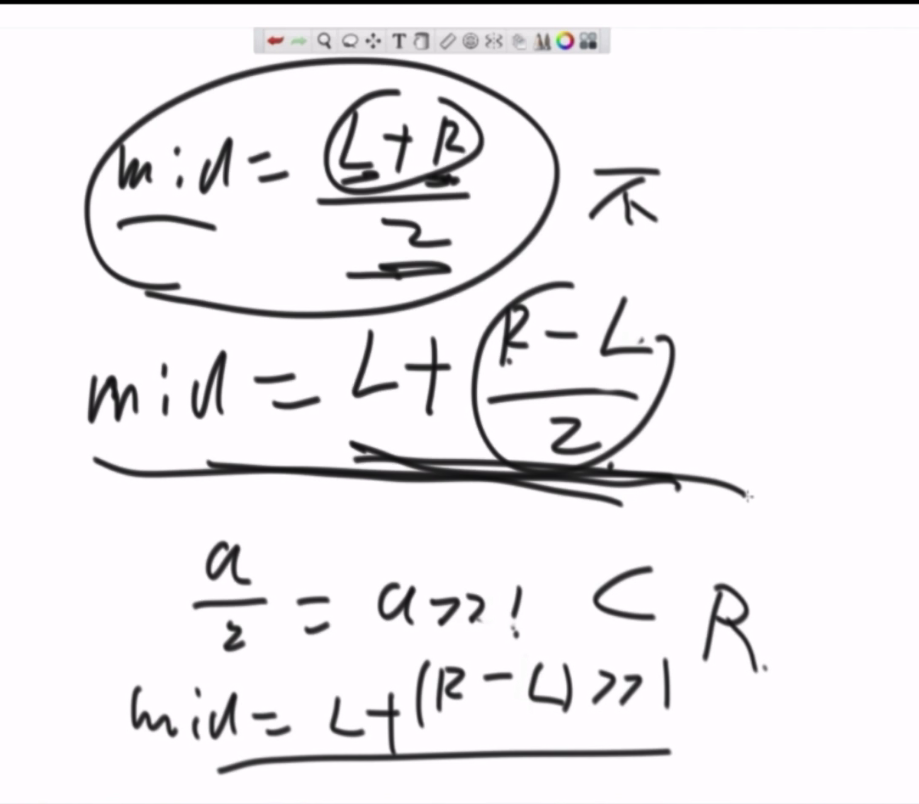 mid = (L + R) / 2
mid = L + (R - L) / 2
a / 2 = a >> 1
mid = L + (R - L) >> 1